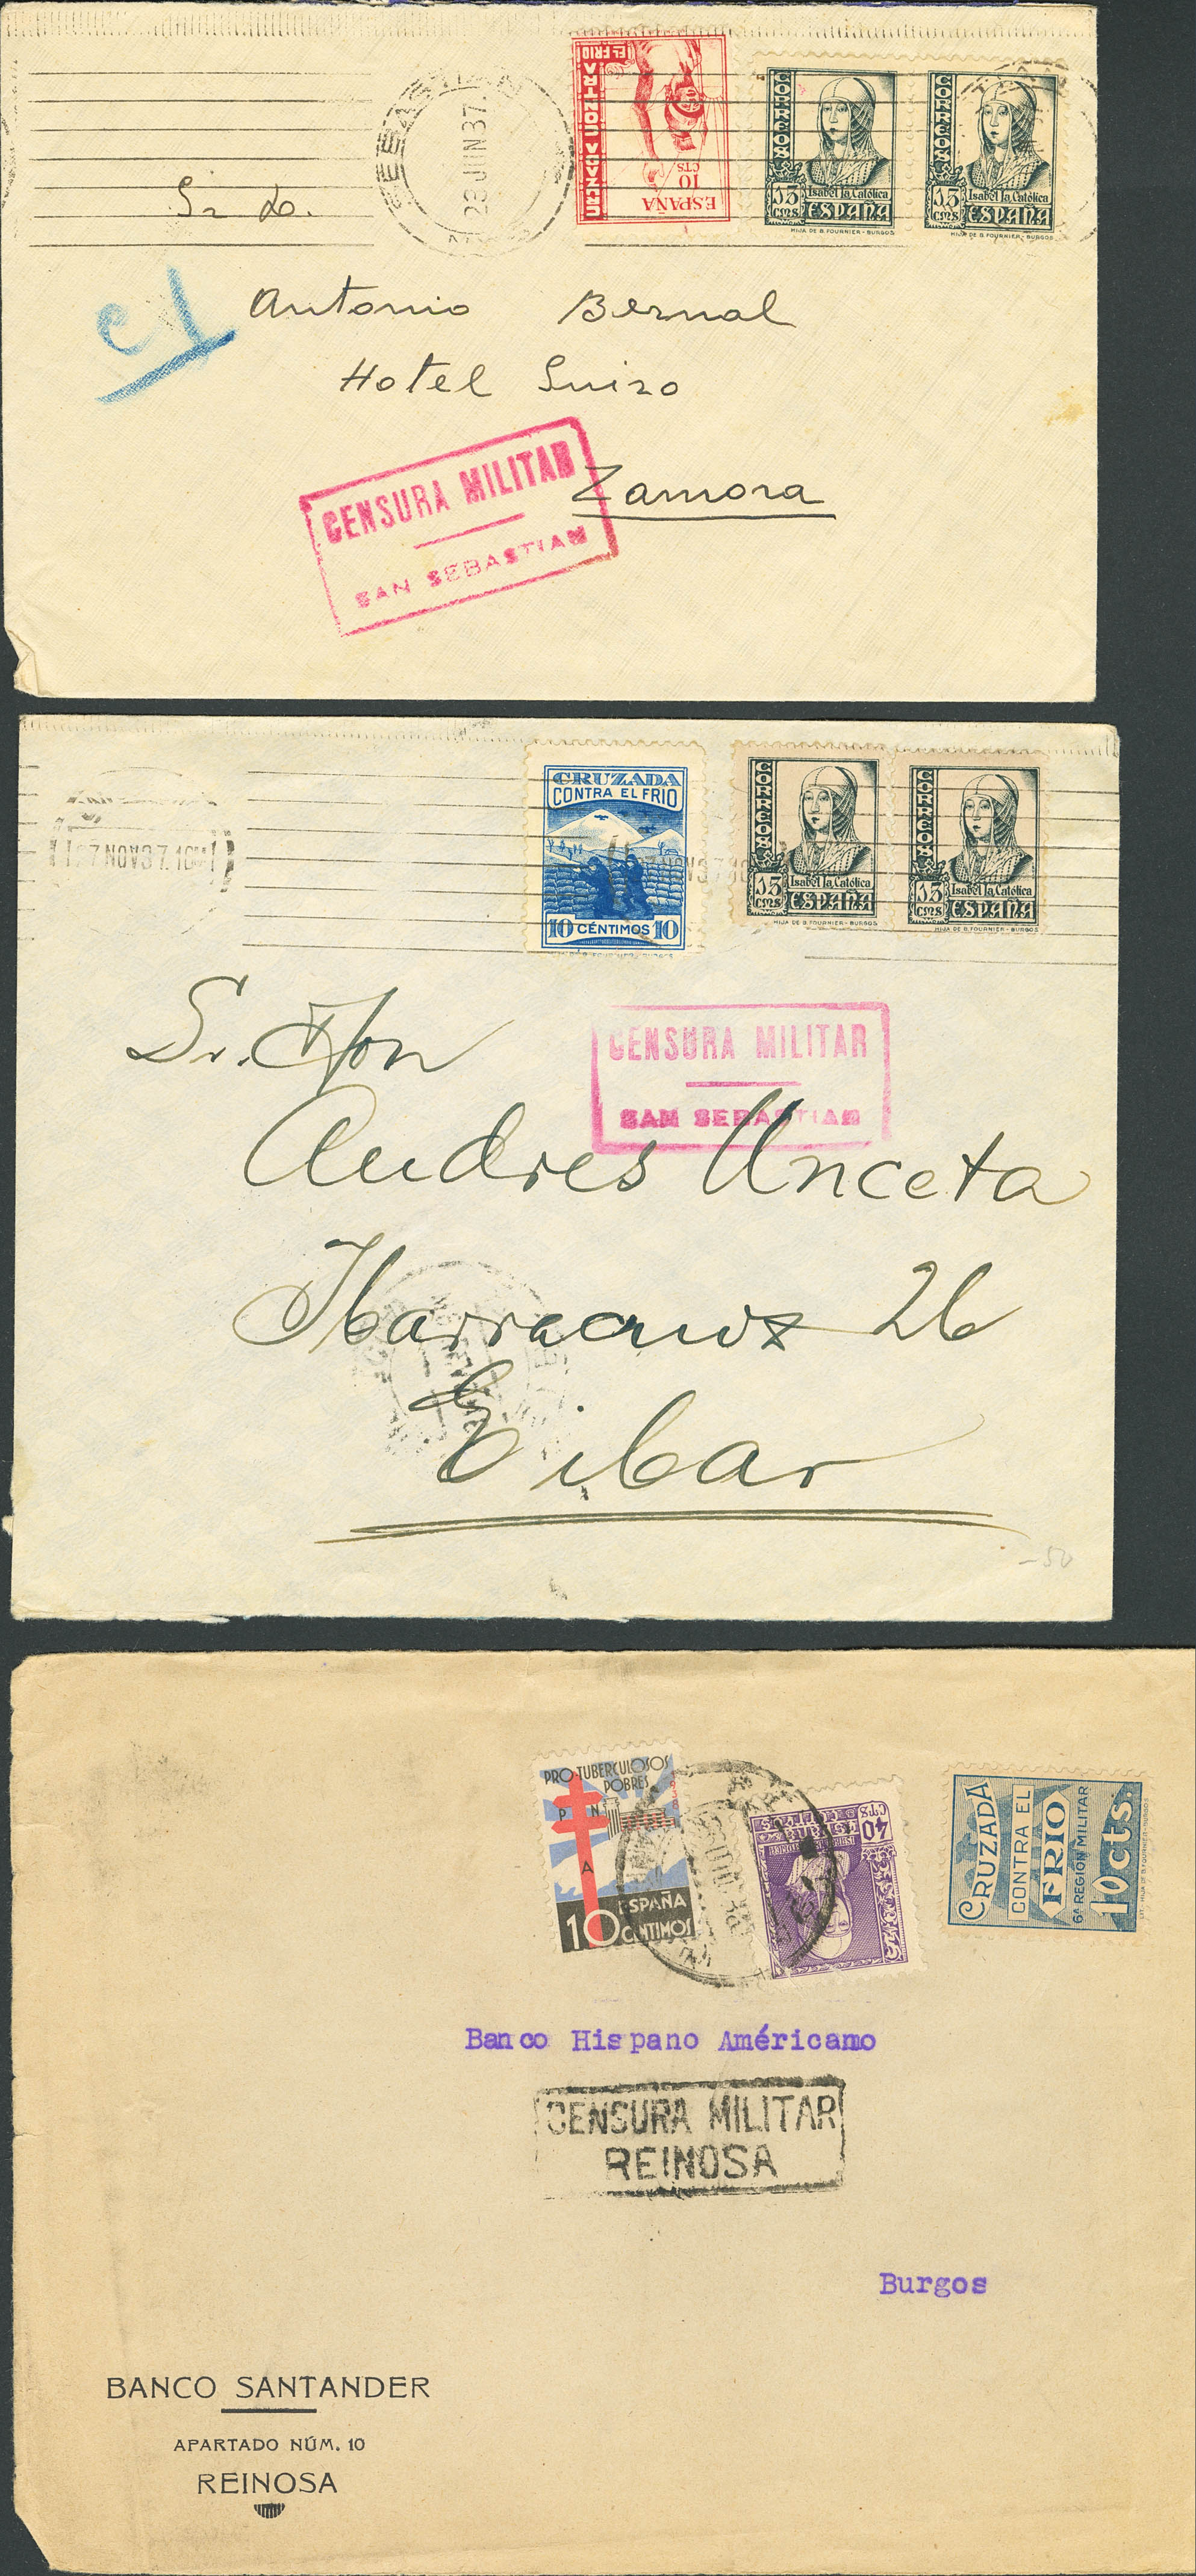 SEBASTIAN
23 JUN 37
CRUZADA CONTRA
EL FRIO
ESPAÑA
10
CTS
CORREOS
15
cms
Isabel la Católica
ESPAÑA
HIJA DE B. FOURNIER - BURGOS
CORREOS
15
cms
Isabel la Católica
ESPAÑA
HIJA DE B. FOURNIER - BURGOS
Sr D.
Antonio Bernal
Hotel Suizo
Zamora
CENSURA MILITAR
SAN SEBASTIAN
27 NOV 37. 10M
CRUZADA
CONTRA EL FRIO
10 CÉNTIMOS 10
CORREOS
15
cms
Isabel la Católica
ESPAÑA
HIJA DE B. FOURNIER - BURGOS
CORREOS
15
cms
Isabel la Católica
ESPAÑA
HIJA DE B. FOURNIER - BURGOS
Sr. Don
CENSURA MILITAR
SAN SEBASTIAN
Andres Unceta
26
Eibar
-50
PRO-TUBERCULOSOS
POBRES
P N
A
ESPAÑA
10 CÉNTIMOS
40
CTS
CRUZADA
CONTRA EL
FRIO
6ª REGION MILITAR
10 cts.
Banco Hispano Américamo
CENSURA MILITAR
REINOSA
Burgos
BANCO SANTANDER
APARTADO NÚM. 10
REINOSA